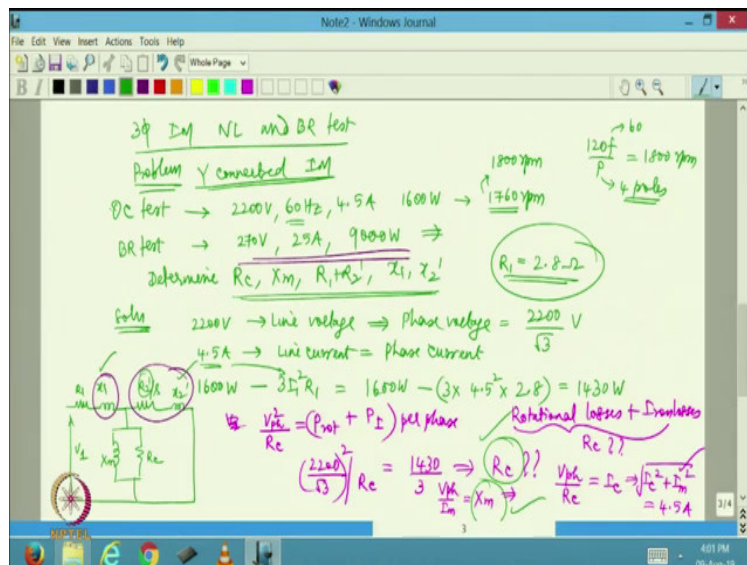 Note2 - Windows Journal
File Edit View Insert Actions Tools Help
Whole Page
B I
3φ IM NL and BR test
Problem Y connected IM
OC test → 2200V, 60Hz, 4.5A 1600W → 1760 rpm
1800 rpm
120f/P = 1800 rpm
60
4 poles
BR test → 270V, 25A, 9000W ⇒
Determine Rc, Xm, R1+R2', x1, x2'
R1 = 2.8Ω
Soln 2200V → Line voltage ⇒ Phase voltage = 2200/√3 V
4.5A → Line current = Phase current
1600W − 3I1²R1 = 1600W − (3 × 4.5² × 2.8) = 1430W
R1 x1 R2'/s x2'
V1 Xm Rc
Vph²/Rc = (Prot + PI) per phase
Rotational losses + Iron losses
Rc ??
(2200/√3)²/Rc = 1430/3 ⇒ Rc ??
Vph/Im = Xm ⇒
Vph/Rc = Ic ⇒ √Ic² + Im² = 4.5A
NPTEL
3
3/4
4:01 PM